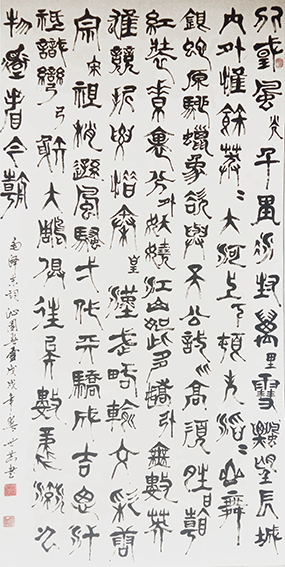 北國風光千里冰封萬里雪飄望長城
內外惟餘莽〻大河上下頓失滔〻山舞
銀蛇原馳蠟象欲與天公試比高須晴日看
紅裝素裹分外妖嬈江山如此多嬌引無數英
雄競折腰惜秦皇漢武略輸文彩唐
宗宋祖稍遜風騷一代天驕成吉思汗
祗識彎弓射大鵰俱往矣數風流人
物還看今朝
毛澤東詞沁園春雪戊戌年世書